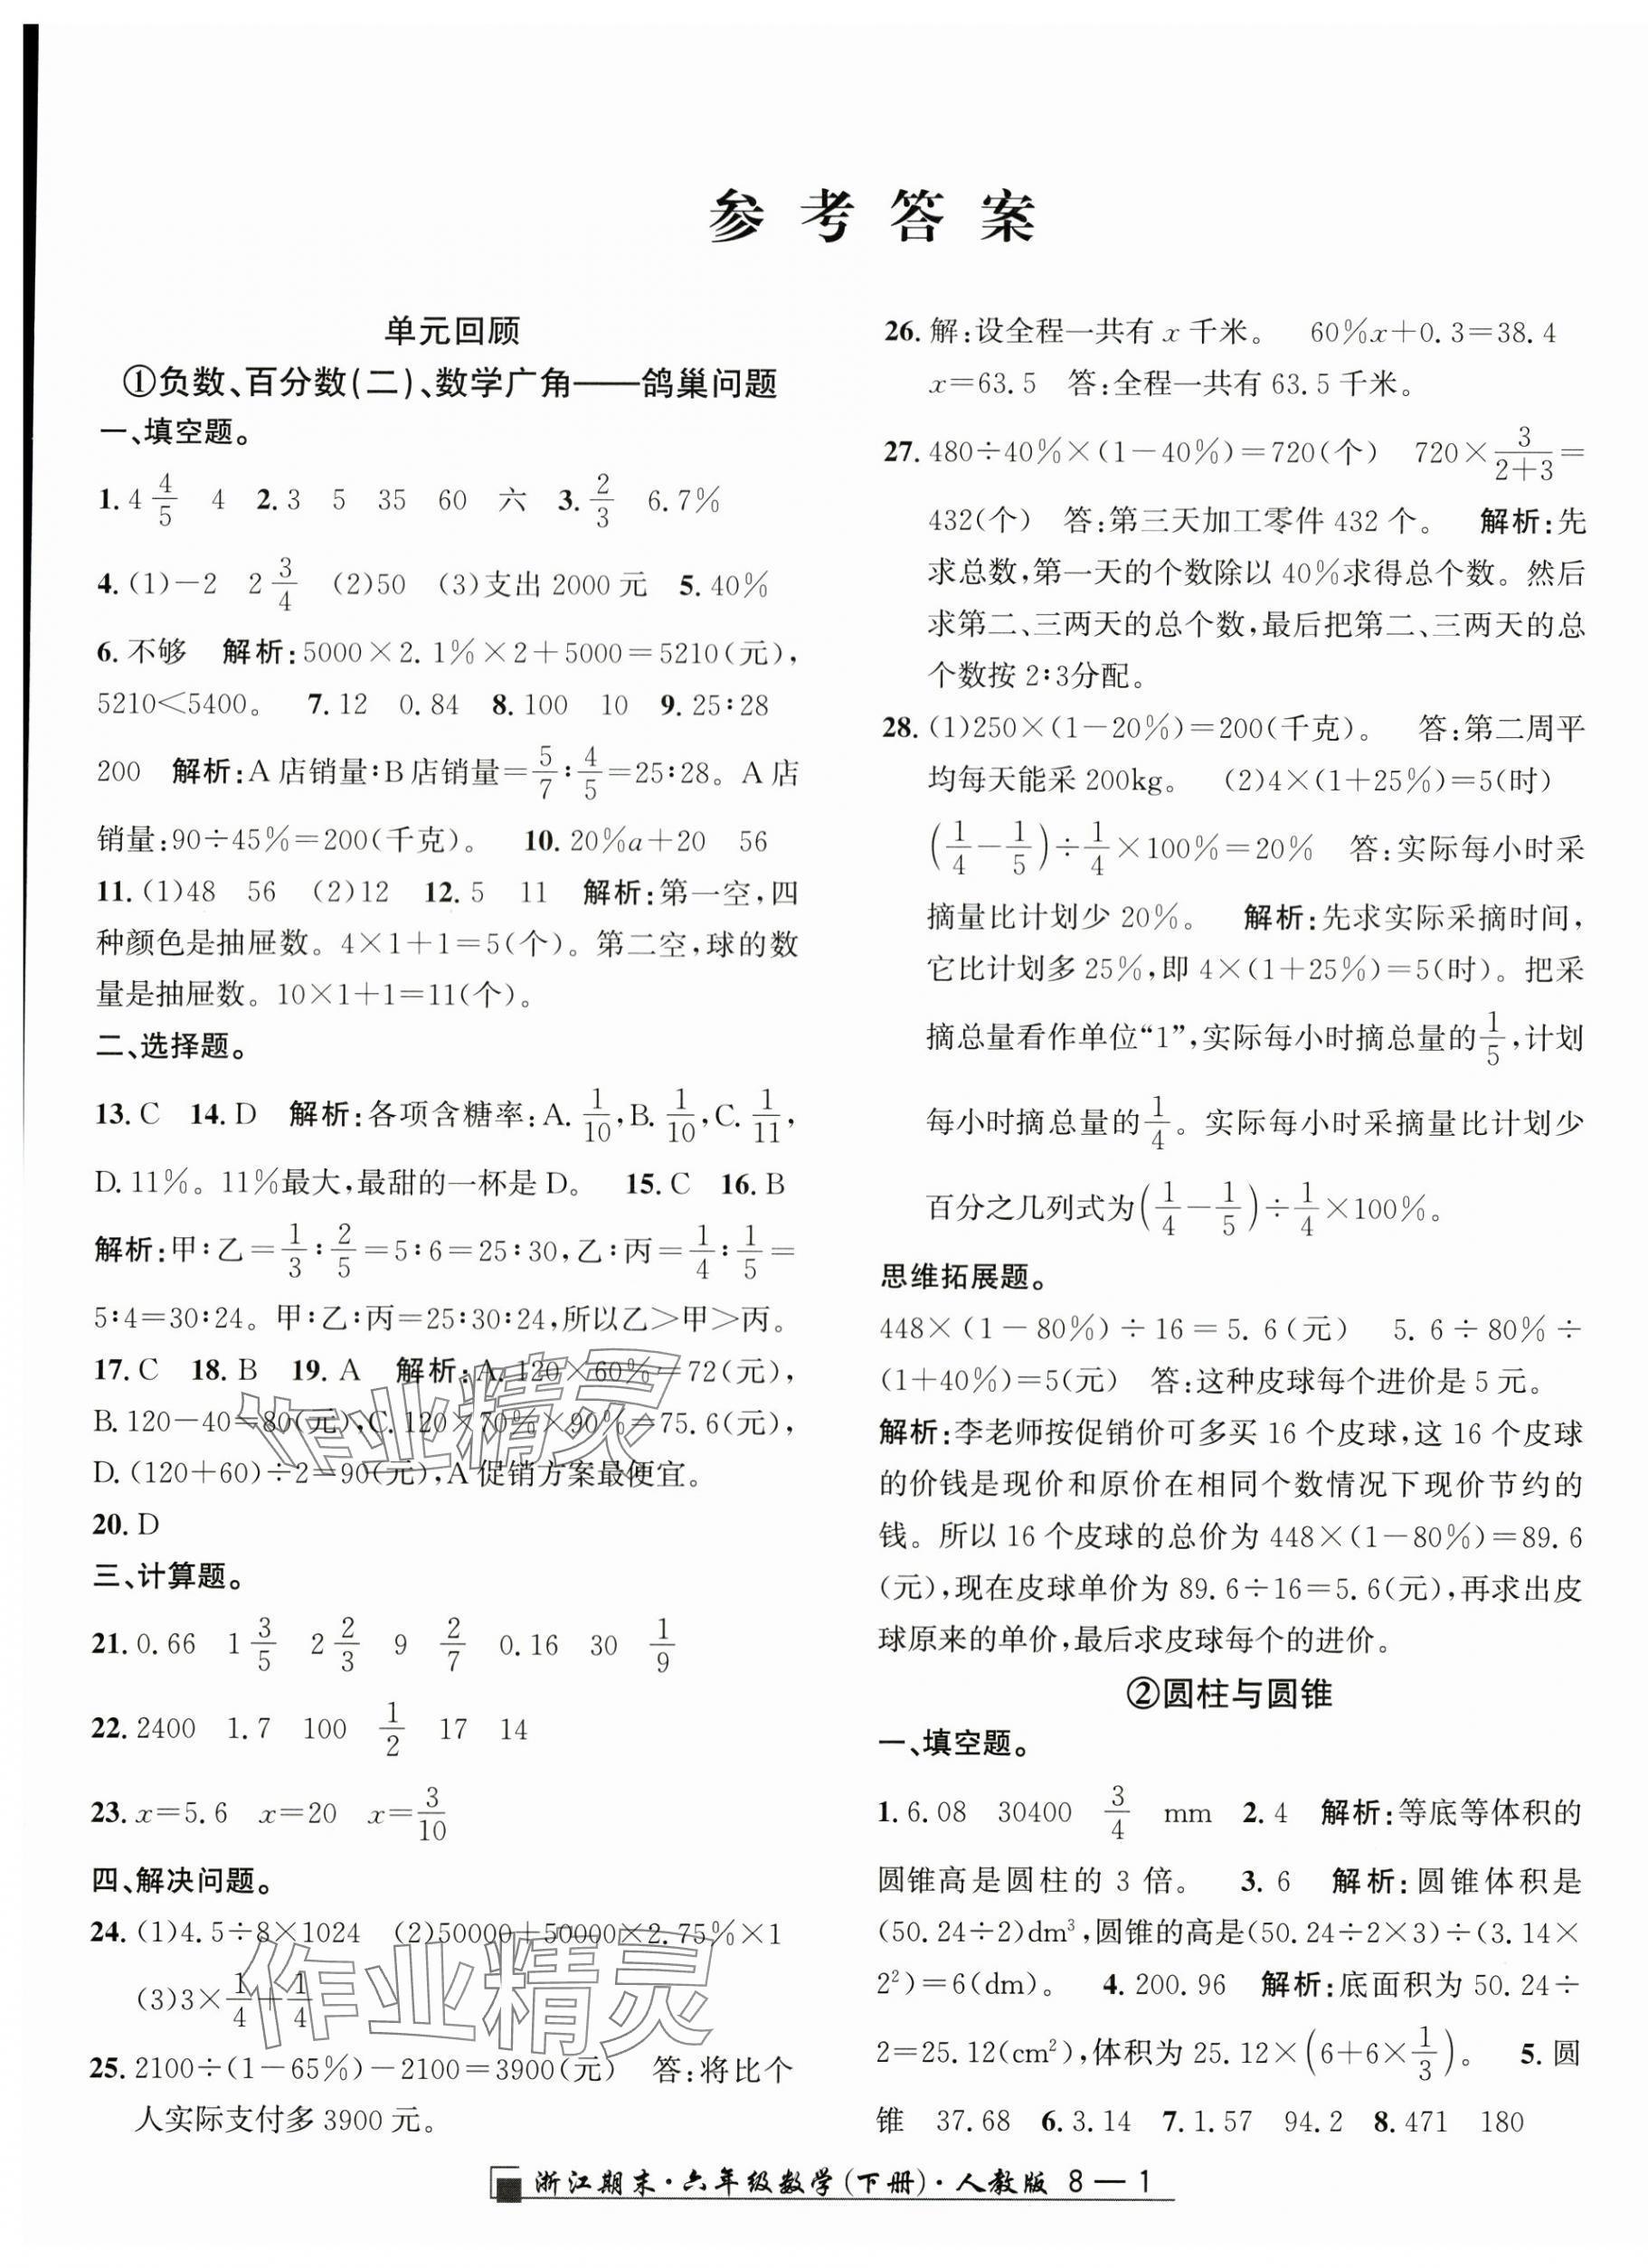 参考答案
单元回顾
①负数、百分数(二)、数学广角——鸽巢问题
一、填空题。
1. 4 4/5 4 2. 3 5 35 60 六 3. 2/3 6.7%
4. (1)-2 2 3/4 (2)50 (3)支出 2000 元 5. 40%
6. 不够 解析:5000×2.1%×2+5000=5210(元),
5210<5400。 7. 12 0.84 8. 100 10 9. 25∶28
200 解析:A 店销量∶B 店销量=5/7∶4/5=25∶28。A 店
销量:90÷45%=200(千克)。 10. 20%a+20 56
11. (1)48 56 (2)12 12. 5 11 解析:第一空,四
种颜色是抽屉数。4×1+1=5(个)。第二空,球的数
量是抽屉数。10×1+1=11(个)。
二、选择题。
13. C 14. D 解析:各项含糖率:A. 1/10,B. 1/10,C. 1/11,
D. 11%。11%最大,最甜的一杯是 D。 15. C 16. B
解析:甲∶乙=1/3∶2/5=5∶6=25∶30,乙∶丙=1/4∶1/5=
5∶4=30∶24。甲∶乙∶丙=25∶30∶24,所以乙>甲>丙。
17. C 18. B 19. A 解析:A. 120×60%=72(元),
B. 120-40=80(元),C. 120×70%×90%=75.6(元),
D. (120+60)÷2=90(元),A 促销方案最便宜。
20. D
三、计算题。
21. 0.66 1 3/5 2 2/3 9 2/7 0.16 30 1/9
22. 2400 1.7 100 1/2 17 14
23. x=5.6 x=20 x=3/10
四、解决问题。
24. (1)4.5÷8×1024 (2)50000+50000×2.75%×1
(3)3×1/4+1/4
25. 2100÷(1-65%)-2100=3900(元) 答:将比个
人实际支付多 3900 元。
26. 解:设全程一共有 x 千米。 60%x+0.3=38.4
x=63.5 答:全程一共有 63.5 千米。
27. 480÷40%×(1-40%)=720(个) 720×3/(2+3)=
432(个) 答:第三天加工零件 432 个。 解析:先
求总数,第一天的个数除以 40%求得总个数。然后
求第二、三两天的总个数,最后把第二、三两天的总
个数按 2∶3分配。
28. (1)250×(1-20%)=200(千克)。 答:第二周平
均每天能采 200kg。 (2)4×(1+25%)=5(时)
(1/4-1/5)÷1/4×100%=20% 答:实际每小时采
摘量比计划少 20%。 解析:先求实际采摘时间,
它比计划多 25%,即 4×(1+25%)=5(时)。把采
摘总量看作单位“1”,实际每小时摘总量的1/5,计划
每小时摘总量的1/4。实际每小时采摘量比计划少
百分之几列式为(1/4-1/5)÷1/4×100%。
思维拓展题。
448×(1-80%)÷16=5.6(元) 5.6÷80%÷
(1+40%)=5(元) 答:这种皮球每个进价是 5 元。
解析:李老师按促销价可多买 16 个皮球,这 16 个皮球
的价钱是现价和原价在相同个数情况下现价节约的
钱。所以 16 个皮球的总价为 448×(1-80%)=89.6
(元),现在皮球单价为 89.6÷16=5.6(元),再求出皮
球原来的单价,最后求皮球每个的进价。
②圆柱与圆锥
一、填空题。
1. 6.08 30400 3/4 mm 2. 4 解析:等底等体积的
圆锥高是圆柱的 3 倍。 3. 6 解析:圆锥体积是
(50.24÷2)dm³,圆锥的高是(50.24÷2×3)÷(3.14×
2²)=6(dm)。 4. 200.96 解析:底面积为 50.24÷
2=25.12(cm²),体积为 25.12×(6+6×1/3)。 5. 圆
锥 37.68 6. 3.14 7. 1.57 94.2 8. 471 180
浙江期末·六年级数学(下册)·人教版 8—1
作业精灵
作业精灵